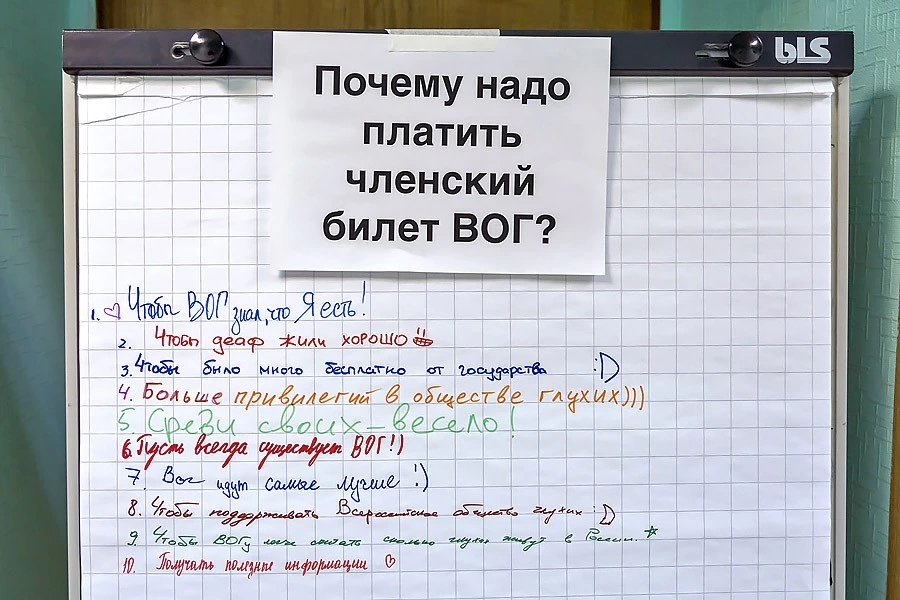 bLS
Почему надо
платить
членский
билет ВОГ?
1. ♡ Чтобы ВОГ знал, что Я есть!
2. Чтобы деаф жили хорошо
3. Чтобы было много бесплатно от государства :D
4. Больше привилегий в обществе глухих)))
5. Среди своих – весело!
6. Пусть всегда существует ВОГ!)
7. Вог идут самые лучшие !)
8. Чтобы поддерживать Всероссийское общество глухих :D
9. Чтобы ВОГу легче считать сколько глухих живут в России. ☆
10. Получать полезные информации ♡